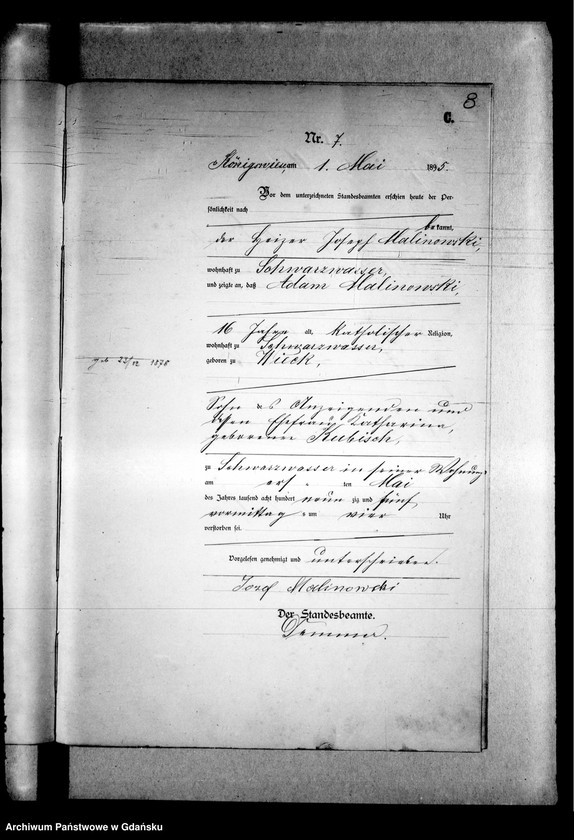 8
C.
Nr. 7.
Königswiese, am 1. Mai 1895.
Vor dem unterzeichneten Standesbeamten erschien heute der Per-
sönlichkeit nach
bekannt,
der Heizer Joseph Malinowski,
wohnhaft zu Schwarzwasser,
und zeigte an, daß Adam Malinowski,
16 Jahre alt, katholischer Religion,
wohnhaft zu Schwarzwasser,
geboren zu Wieck,
geb 1878
Sohn des Anzeigenden und
dessen Ehefrau Katharina,
geborenen Kubisch,
zu Schwarzwasser in seiner Wohnung
am ersten Mai
des Jahres tausend acht hundert neunzig und fünf
vormittags um vier Uhr
verstorben sei.
Vorgelesen, genehmigt und unterschrieben.
Jozef Malinowski
Der Standesbeamte.
Archiwum Państwowe w Gdańsku